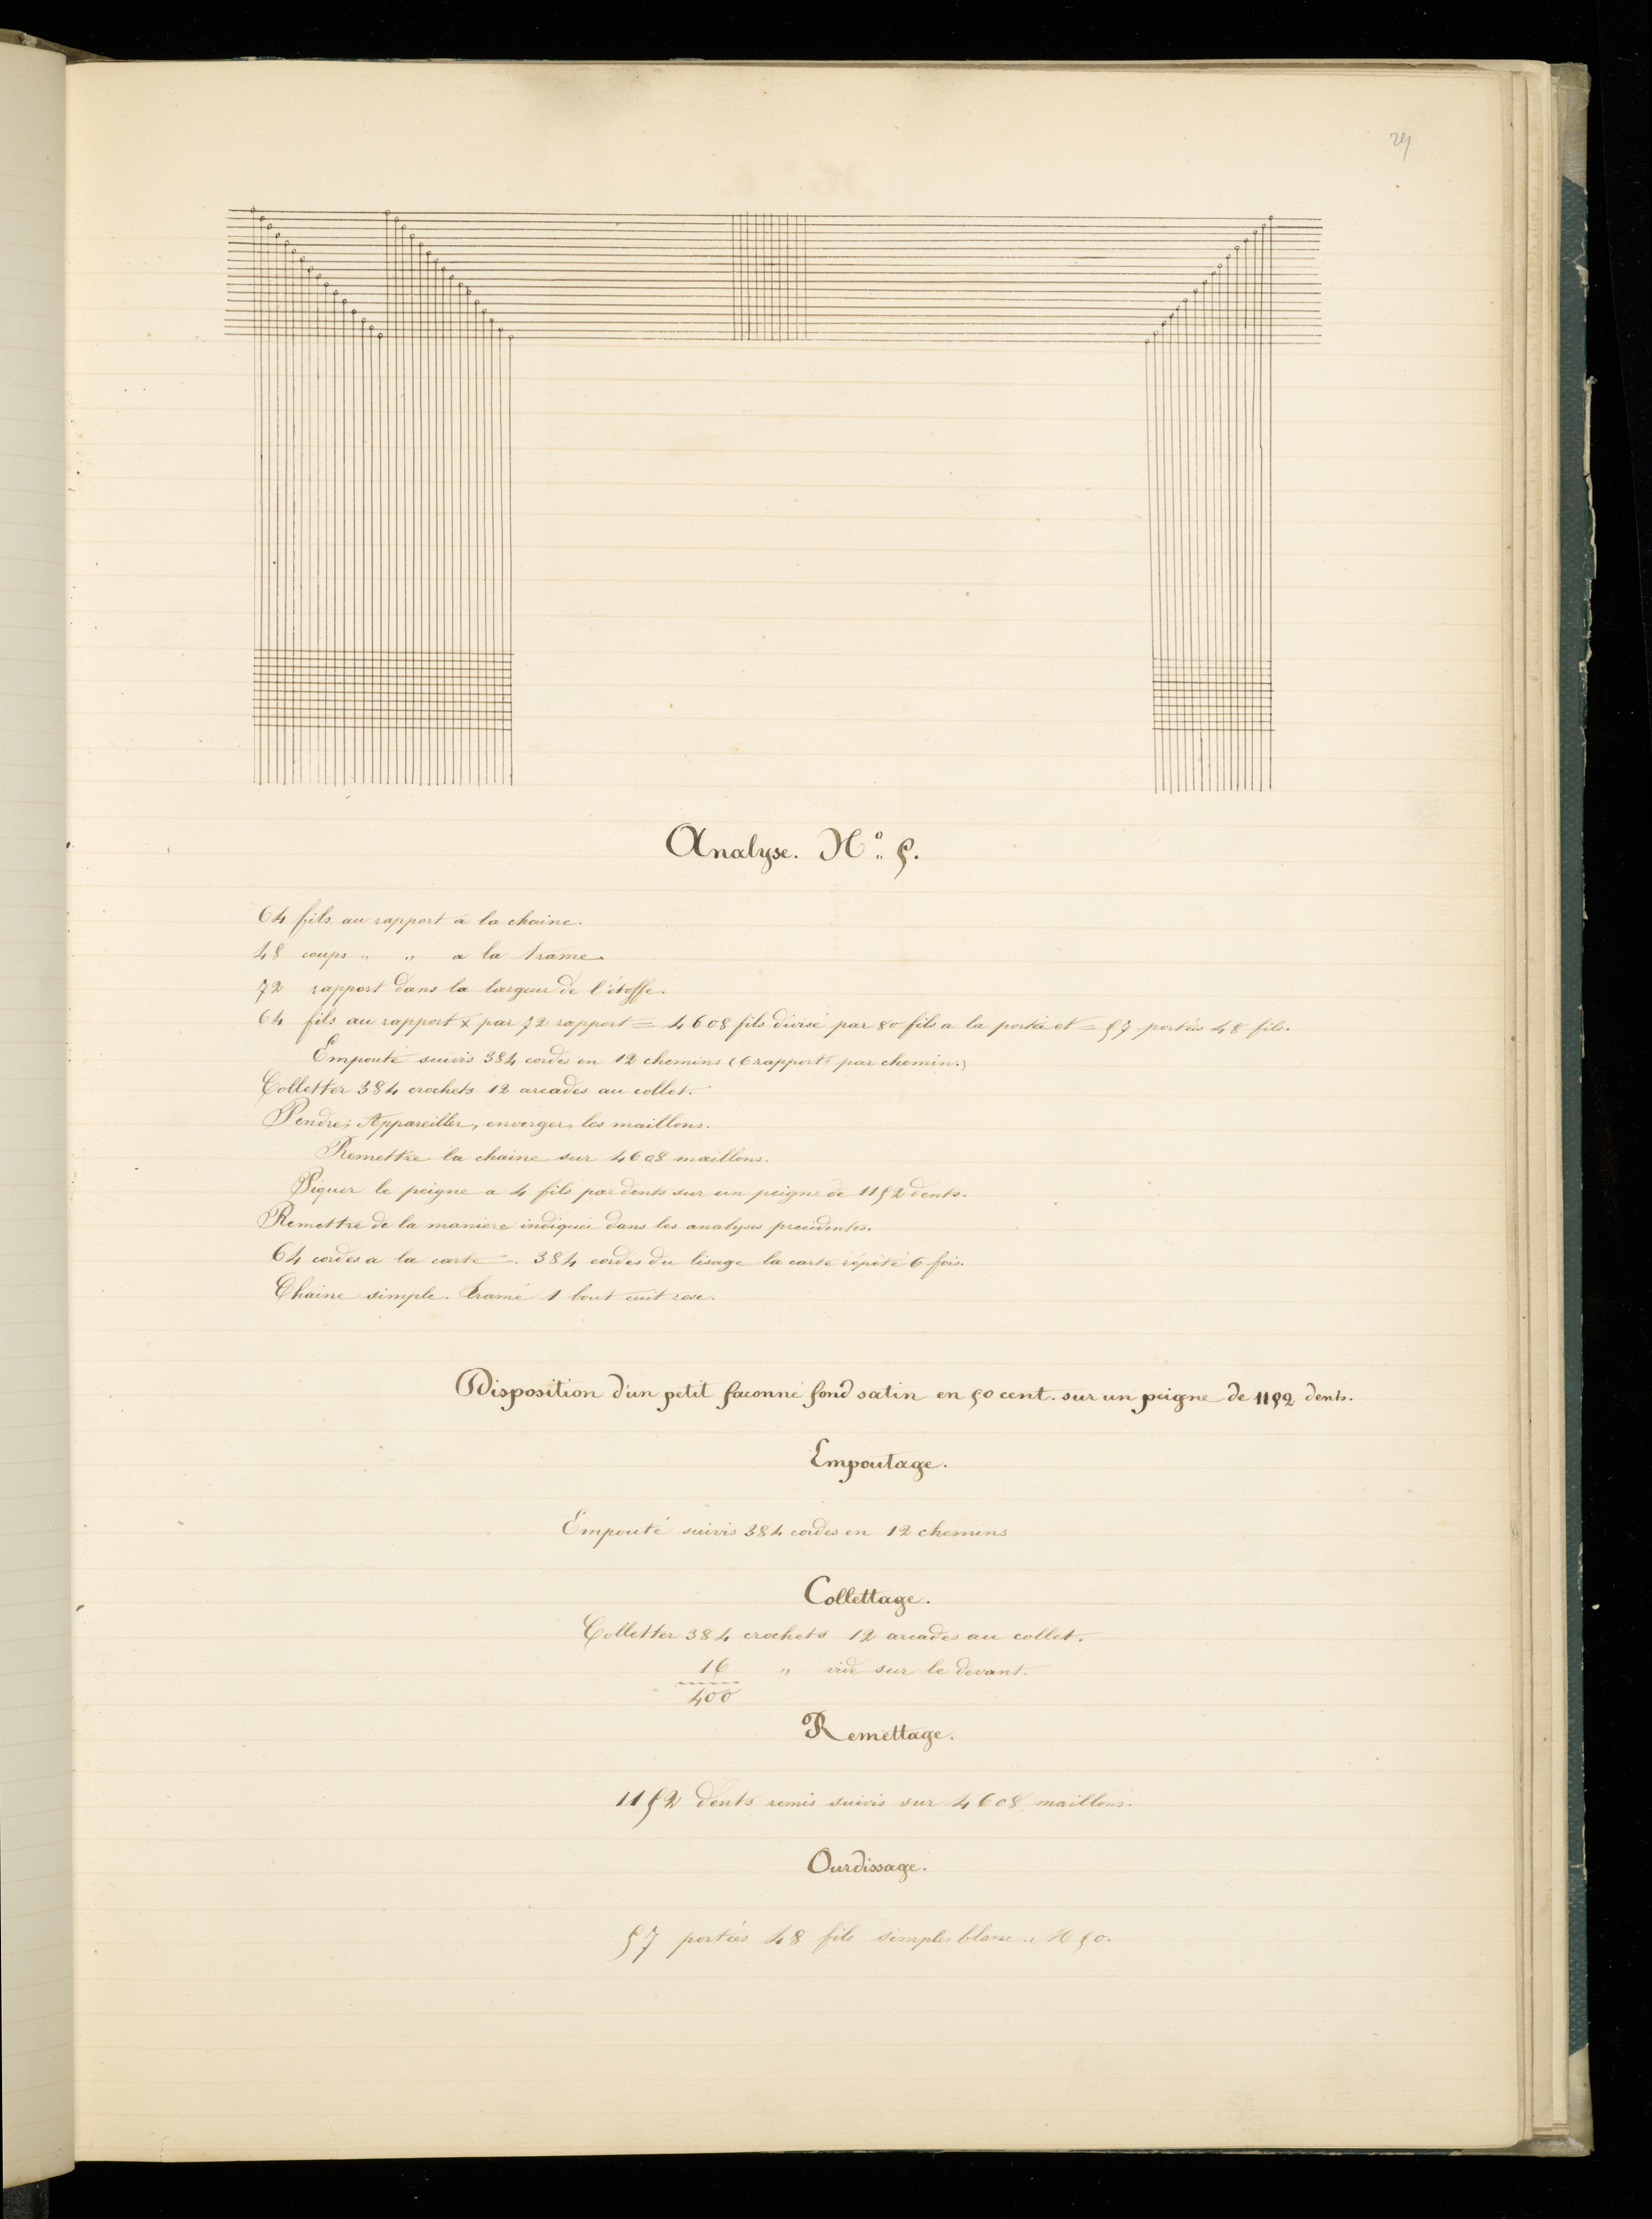 29
Analyse. N° 5.
64 fils au rapport à la chaine.
48 coups " " a la trame.
72 rapport dans la largeur de l'étoffe.
64 fils au rapport x par 72 rapport = 4608 fils divisé par 80 fils a la portée et = 57 portées 48 fils.
Empouté suivis 384 cordes en 12 chemins (6 rapports par chemin.)
Colletter 384 crochets 12 arcades au collet.
Pendre, Appareiller, enverger, les maillons.
Remettre la chaine sur 4608 maillons.
Piquer le peigne a 4 fils par dents sur un peigne de 1152 dents.
Remettre de la maniere indiquée dans les analyses precedentes.
64 cordes a la carte. 384 cordes du lisage la carte répété 6 fois.
Chaine simple. tramé 1 bout cuit rose.
Disposition d'un petit faconné fond satin en 50 cent. sur un peigne de 1152 dents.
Empoutage.
Empouté suivis 384 cordes en 12 chemins
Collettage.
Colletter 384 crochets 12 arcades au collet.
16 " vide sur le devant.
400
Remettage.
1152 dents remis suivis sur 4608 maillons.
Ourdissage.
57 portées 48 fils simple blanc. M 50.